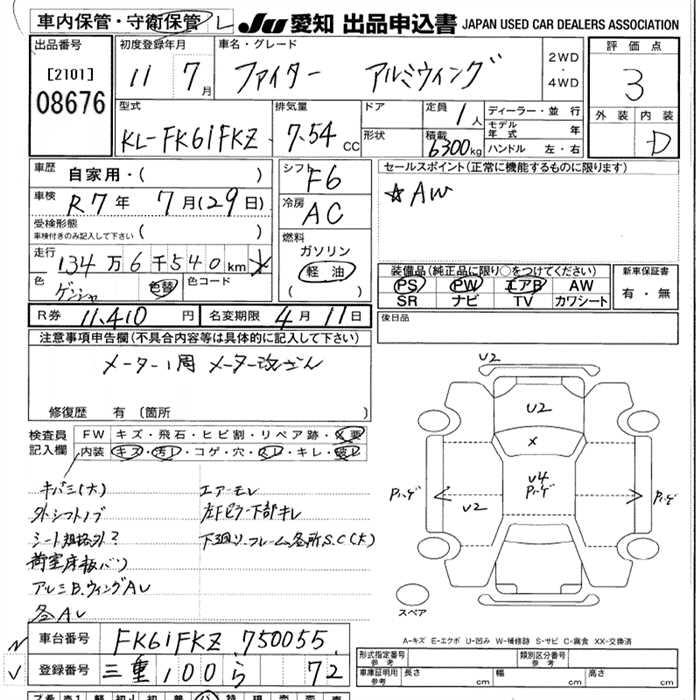 車内保管・守衛保管 L JU 愛知 出品申込書 JAPAN USED CAR DEALERS ASSOCIATION
出品番号
[2101]
08676
初度登録年月
11 7月
車名・グレード
ファイター アルミウィング
2WD
・
4WD
評価点
3
外装 内装
D
型式
KL-FK61FKZ
排気量
7.54 CC
ドア
形状
定員
1人
積載
6300kg
ディーラー・並行
モデル年式 年
ハンドル 左・右
車歴
自家用・( )
車検
R7年 7月(29日)
受検形態
車検付きのみ記入して下さい ( )
走行
134万6千540km
色
色替
色コード
シフト
F6
冷房
AC
燃料
ガソリン
軽油
( )
セールスポイント(正常に機能するものに限ります)
☆AW
装備品(純正品に限り○をつけてください)
PS PW エアB AW
SR ナビ TV カワシート
新車保証書
有・無
R券 11,410 円 名変期限 4月11日
後日品
注意事項申告欄(不具合内容等は具体的に記入して下さい)
メーター1周 メーター改ざん
修復歴 有 〔箇所 〕
検査員記入欄
FW キズ・飛石・ヒビ割・リペア跡・X要
内装 キズ・汚レ・コゲ・穴・スレ・キレ・破レ
キバミ(大) エアーモレ
外シフトノブ
シート規格外?
荷室床板バツ
アルミB.ウィングAU
各AU
U2
U2
X
U4
Pハゲ
Pハゲ
U2
Pハゲ
スペア
A-キズ E-エクボ U-凹み W-補修跡 S-サビ C-腐食 XX-交換済
車台番号 FK61FKZ 750055
登録番号 三重 100 ら 72
形式指定番号
参考
類別区分番号
参考
車庫証明用
参考
長さ cm 幅 cm 高さ cm